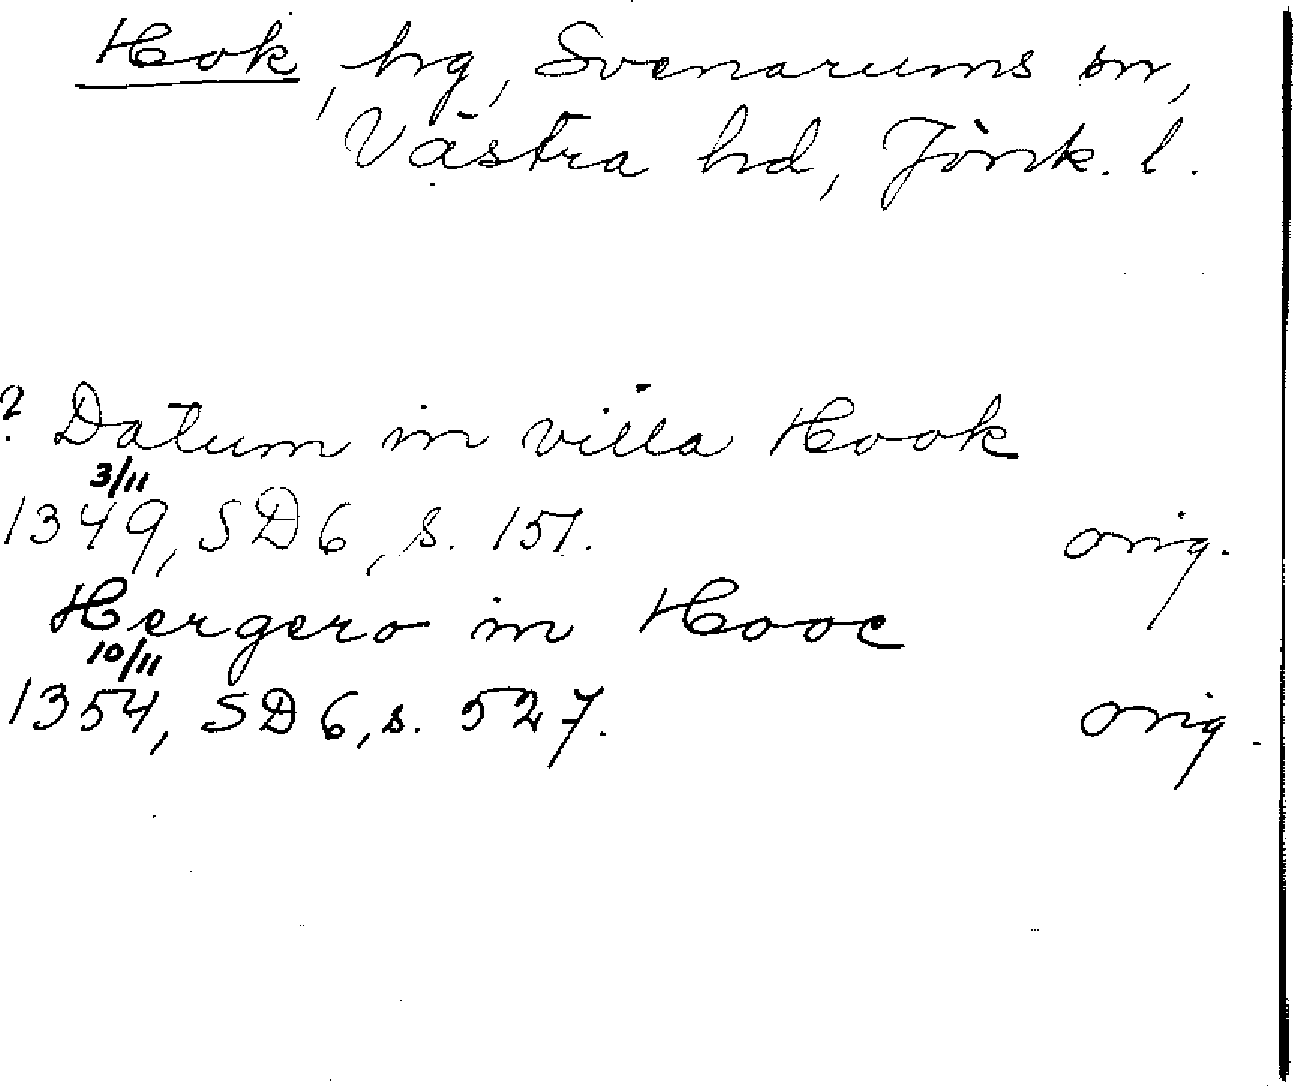 Hok, hg, Svenarums sn,
Västra hd, Jönk. l.
? Datum in villa Hook
3/11
1349, SD 6, s. 151. orig.
Hergero in Hooc
10/11
1354, SD 6, s. 527. orig.